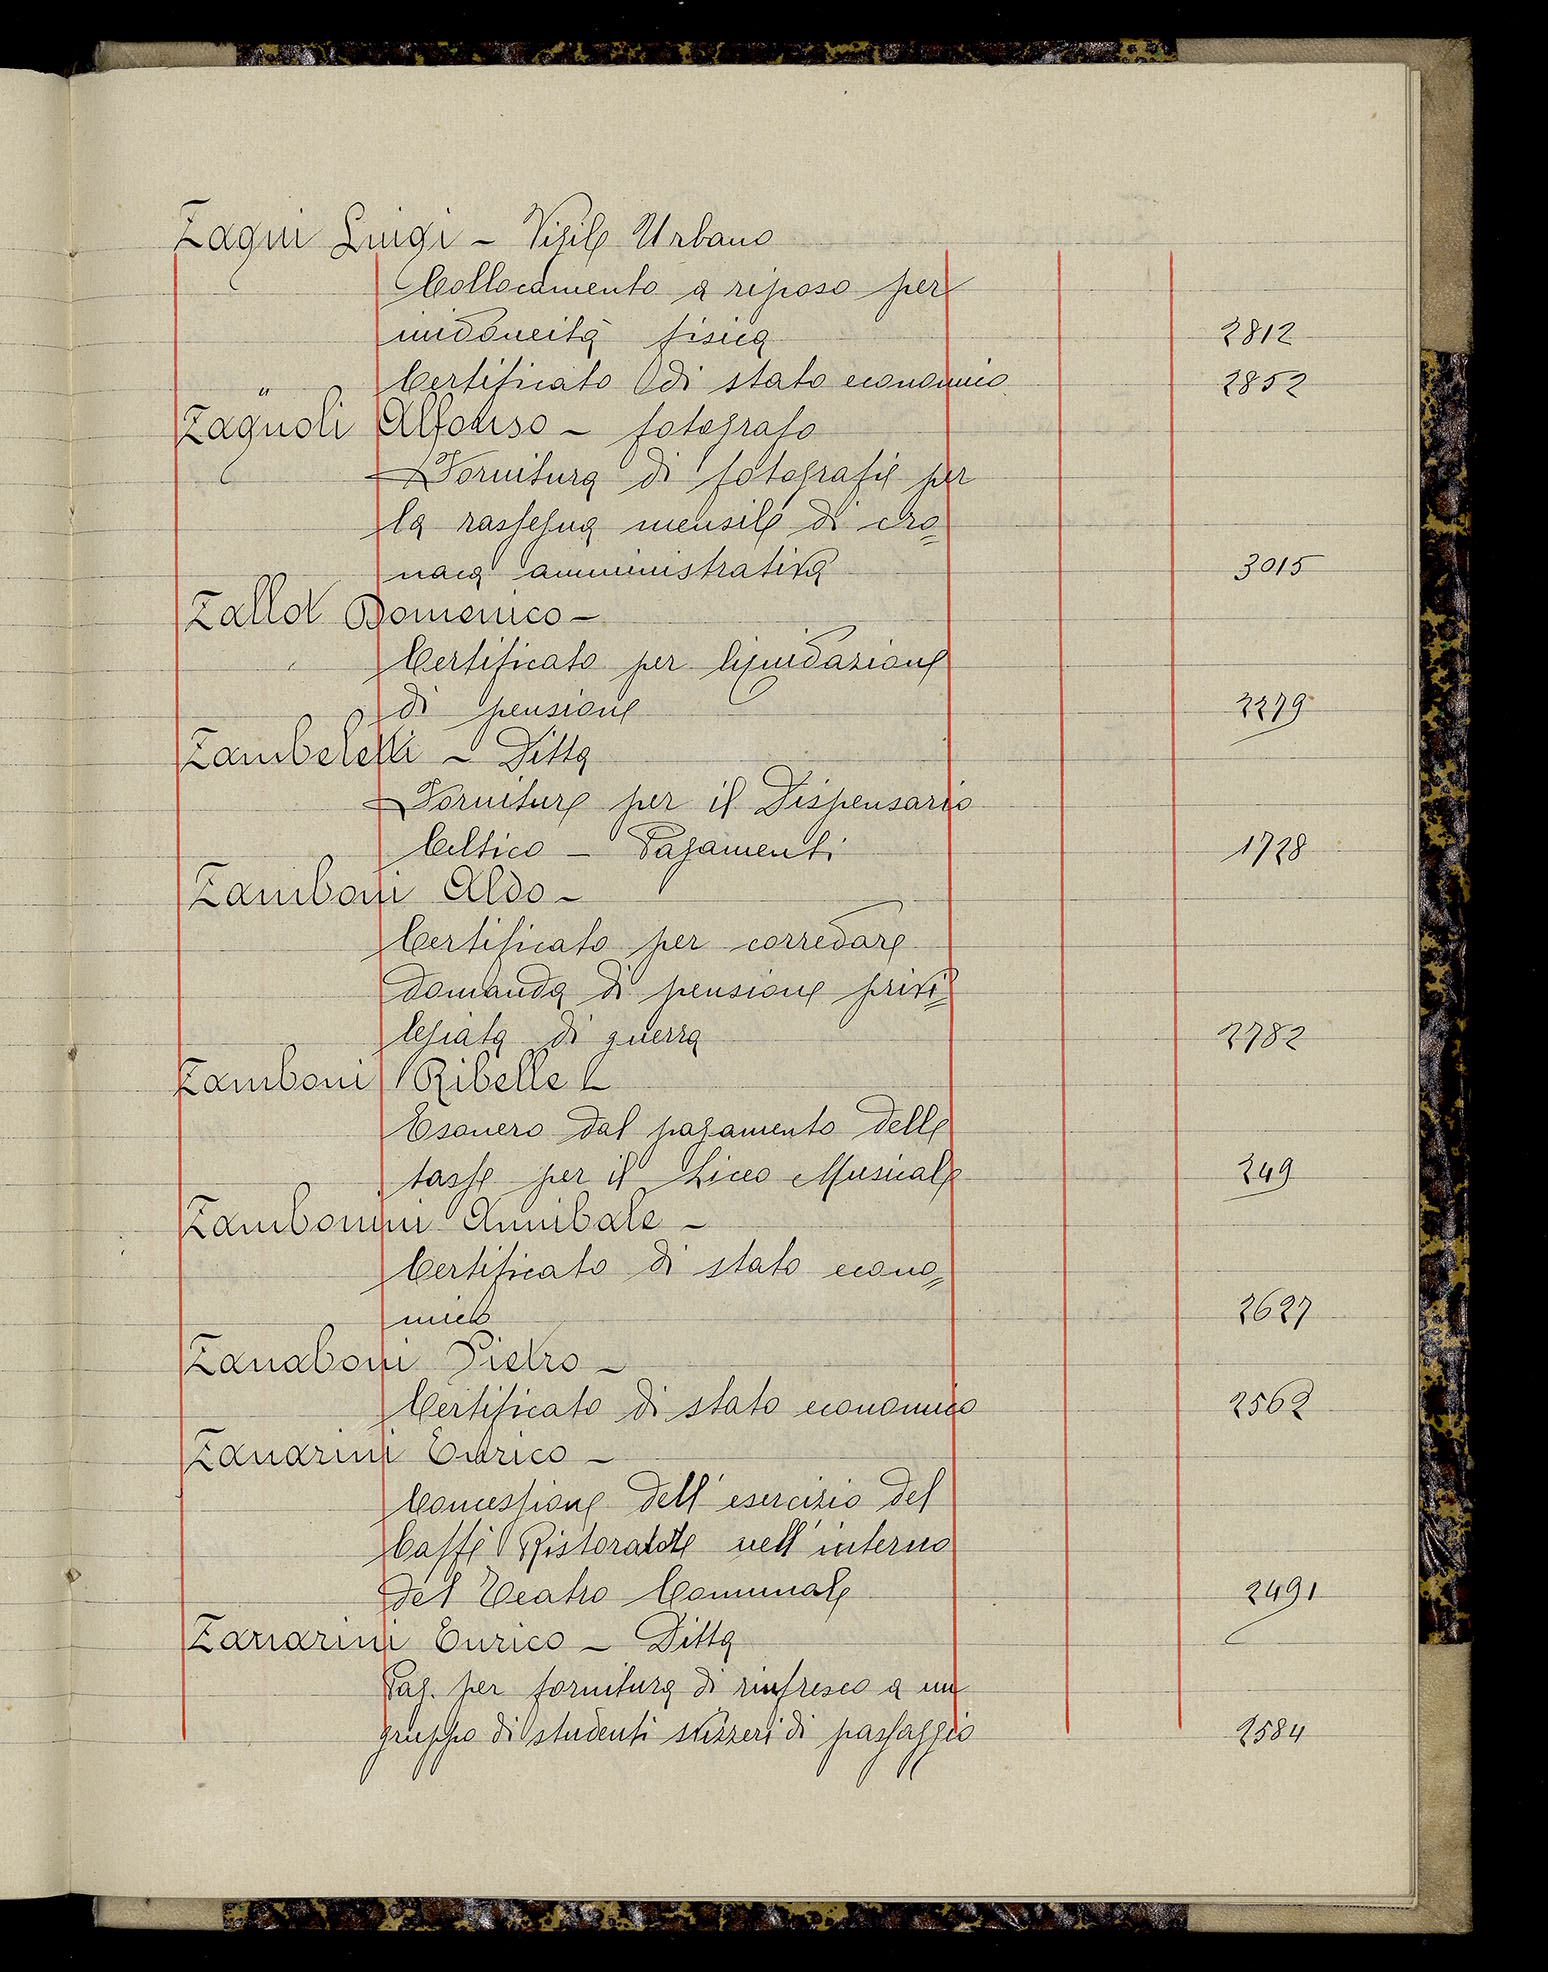 Zagni Luigi - Vigile Urbano
Collocamento a riposo per
inidoneità fisica 2812
" Certificato di stato economico 2852
Zagnoli Alfonso - fotografo
Fornitura di fotografie per
la rassegna mensile di cro=
naca amministrativa 3015
Zallot Domenico -
Certificato per liquidazione
di pensione 2279
Zambeletti - Ditta
Forniture per il Dispensario
Celtico - Pagamenti 1728
Zamboni Aldo -
Certificato per corredare
domanda di pensione privi=
legiata di guerra 2782
Zamboni Ribelle -
Esonero dal pagamento delle
tasse per il Liceo Musicale 249
Zambonini Annibale -
Certificato di stato econo=
mico 2627
Zanaboni Pietro -
Certificato di stato economico 2562
Zanarini Enrico -
Concessione dell'esercizio del
Caffè Ristorante nell'interno
del Teatro Comunale 2491
Zanarini Enrico - Ditta
Pag. per fornitura di rinfresco a un
gruppo di studenti svizzeri di passaggio 2584